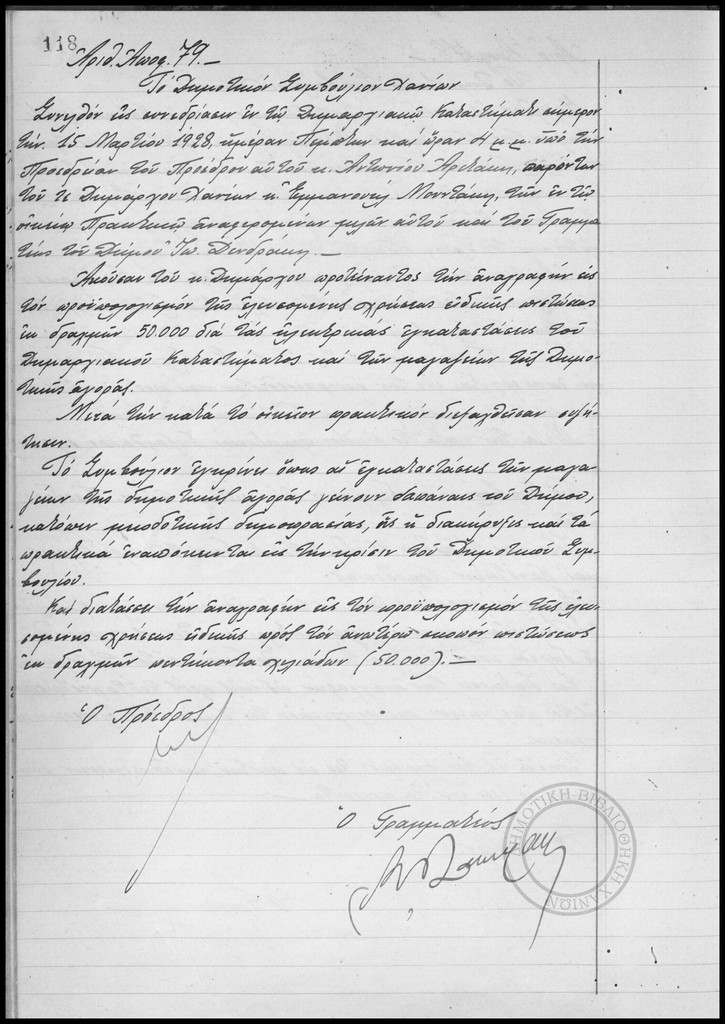 118
Ἀριθ. Ἀποφ. 79.—
Τὸ Δημοτικὸν Συμβούλιον Χανίων
Συνελθὸν εἰς συνεδρίασιν ἐν τῷ Δημαρχιακῷ Καταστήματι σήμερον
τὴν 15 Μαρτίου 1928, ἡμέραν Πέμπτην καὶ ὥραν 4 μ.μ. ὑπὸ τὴν
Προεδρείαν τοῦ Προέδρου αὐτοῦ κ. Ἀντωνίου Ἀρετάκη, παρόντων
τοῦ τε Δημάρχου Χανίων κ. Ἐμμανουὴλ Μουντάκη, τῶν ἐν τῷ
οἰκείῳ Πρακτικῷ ἀναφερομένων μελῶν αὐτοῦ καὶ τοῦ Γραμμα
τέως τοῦ Δήμου Ἰω. Δενδράκη.—
Ἀκοῦσαν τοῦ κ. Δημάρχου προτείναντος τὴν ἀναγραφὴν εἰς
τὸν προϋπολογισμὸν τῆς ἐλευσομένης χρήσεως εἰδικῆς πιστώσεως
ἐκ δραχμῶν 50.000 διὰ τὰς ἠλεκτρικὰς ἐγκαταστάσεις τοῦ
Δημαρχιακοῦ Καταστήματος καὶ τῶν μαγαζείων τῆς Δημο-
τικῆς ἀγορᾶς.
Μετὰ τὴν κατὰ τὸ οἰκεῖον πρακτικὸν διεξαχθεῖσαν συζή-
τησιν.
Τὸ Συμβούλιον ἐγκρίνει ὅπως αἱ ἐγκαταστάσεις τῶν μαγα-
ζείων τῆς δημοτικῆς ἀγορᾶς γείνουν δαπάναις τοῦ Δήμου,
κατόπιν μειοδοτικῆς δημοπρασίας, ἧς ἡ διακήρυξις καὶ τὰ
πρακτικὰ ἐναπόκεινται εἰς τὴν κρίσιν τοῦ Δημοτικοῦ Συμ-
βουλίου.
Καὶ διατάσσει τὴν ἀναγραφὴν εἰς τὸν προϋπολογισμὸν τῆς ἐλευ-
σομένης χρήσεως εἰδικῆς πρὸς τὸν ἀνωτέρω σκοπὸν πιστώσεως
ἐκ δραχμῶν πεντήκοντα χιλιάδων (50.000).—
Ὁ Πρόεδρος
Ὁ Γραμματεύς
ΔΗΜΟΤΙΚΗ ΒΙΒΛΙΟΘΗΚΗ ΧΑΝΙΩΝ